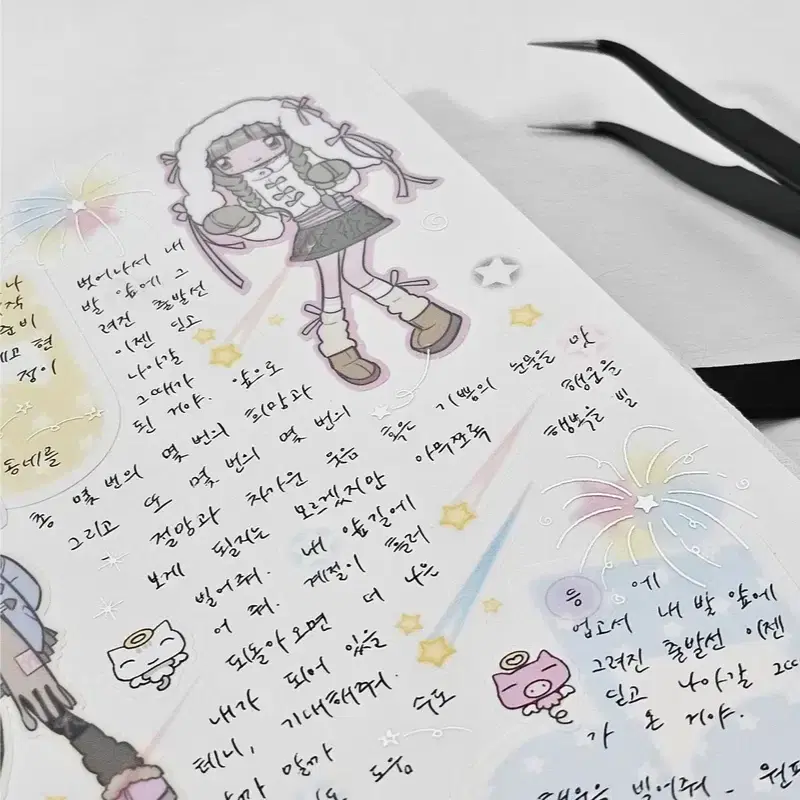 나
작
준비
고 현
정이
동네를
벗어나서 내
발 앞에 그
려진 출발선
이젠 딛고
나아갈
그때가
된 거야. 앞으로
총 몇 번의 몇 번의 희망과
그리고 또 몇 번의 몇 번의
절망과 차가운 웃음 혹은 기쁨의 눈물을 맛
보게 될지는 모르겠지만 아무쪼록 행운을
빌어줘. 내 앞길에 행복을 빌
어 줘. 계절이 흘러
되돌아오면 더 나은
내가 되어 있을
테니, 기대해줘. 수도
말까
도움
등 에
업고서 내 발 앞에
그려진 출발선 이젠
딛고 나아갈 그때
가 온 거야.
행운을 빌어줘 - 원필